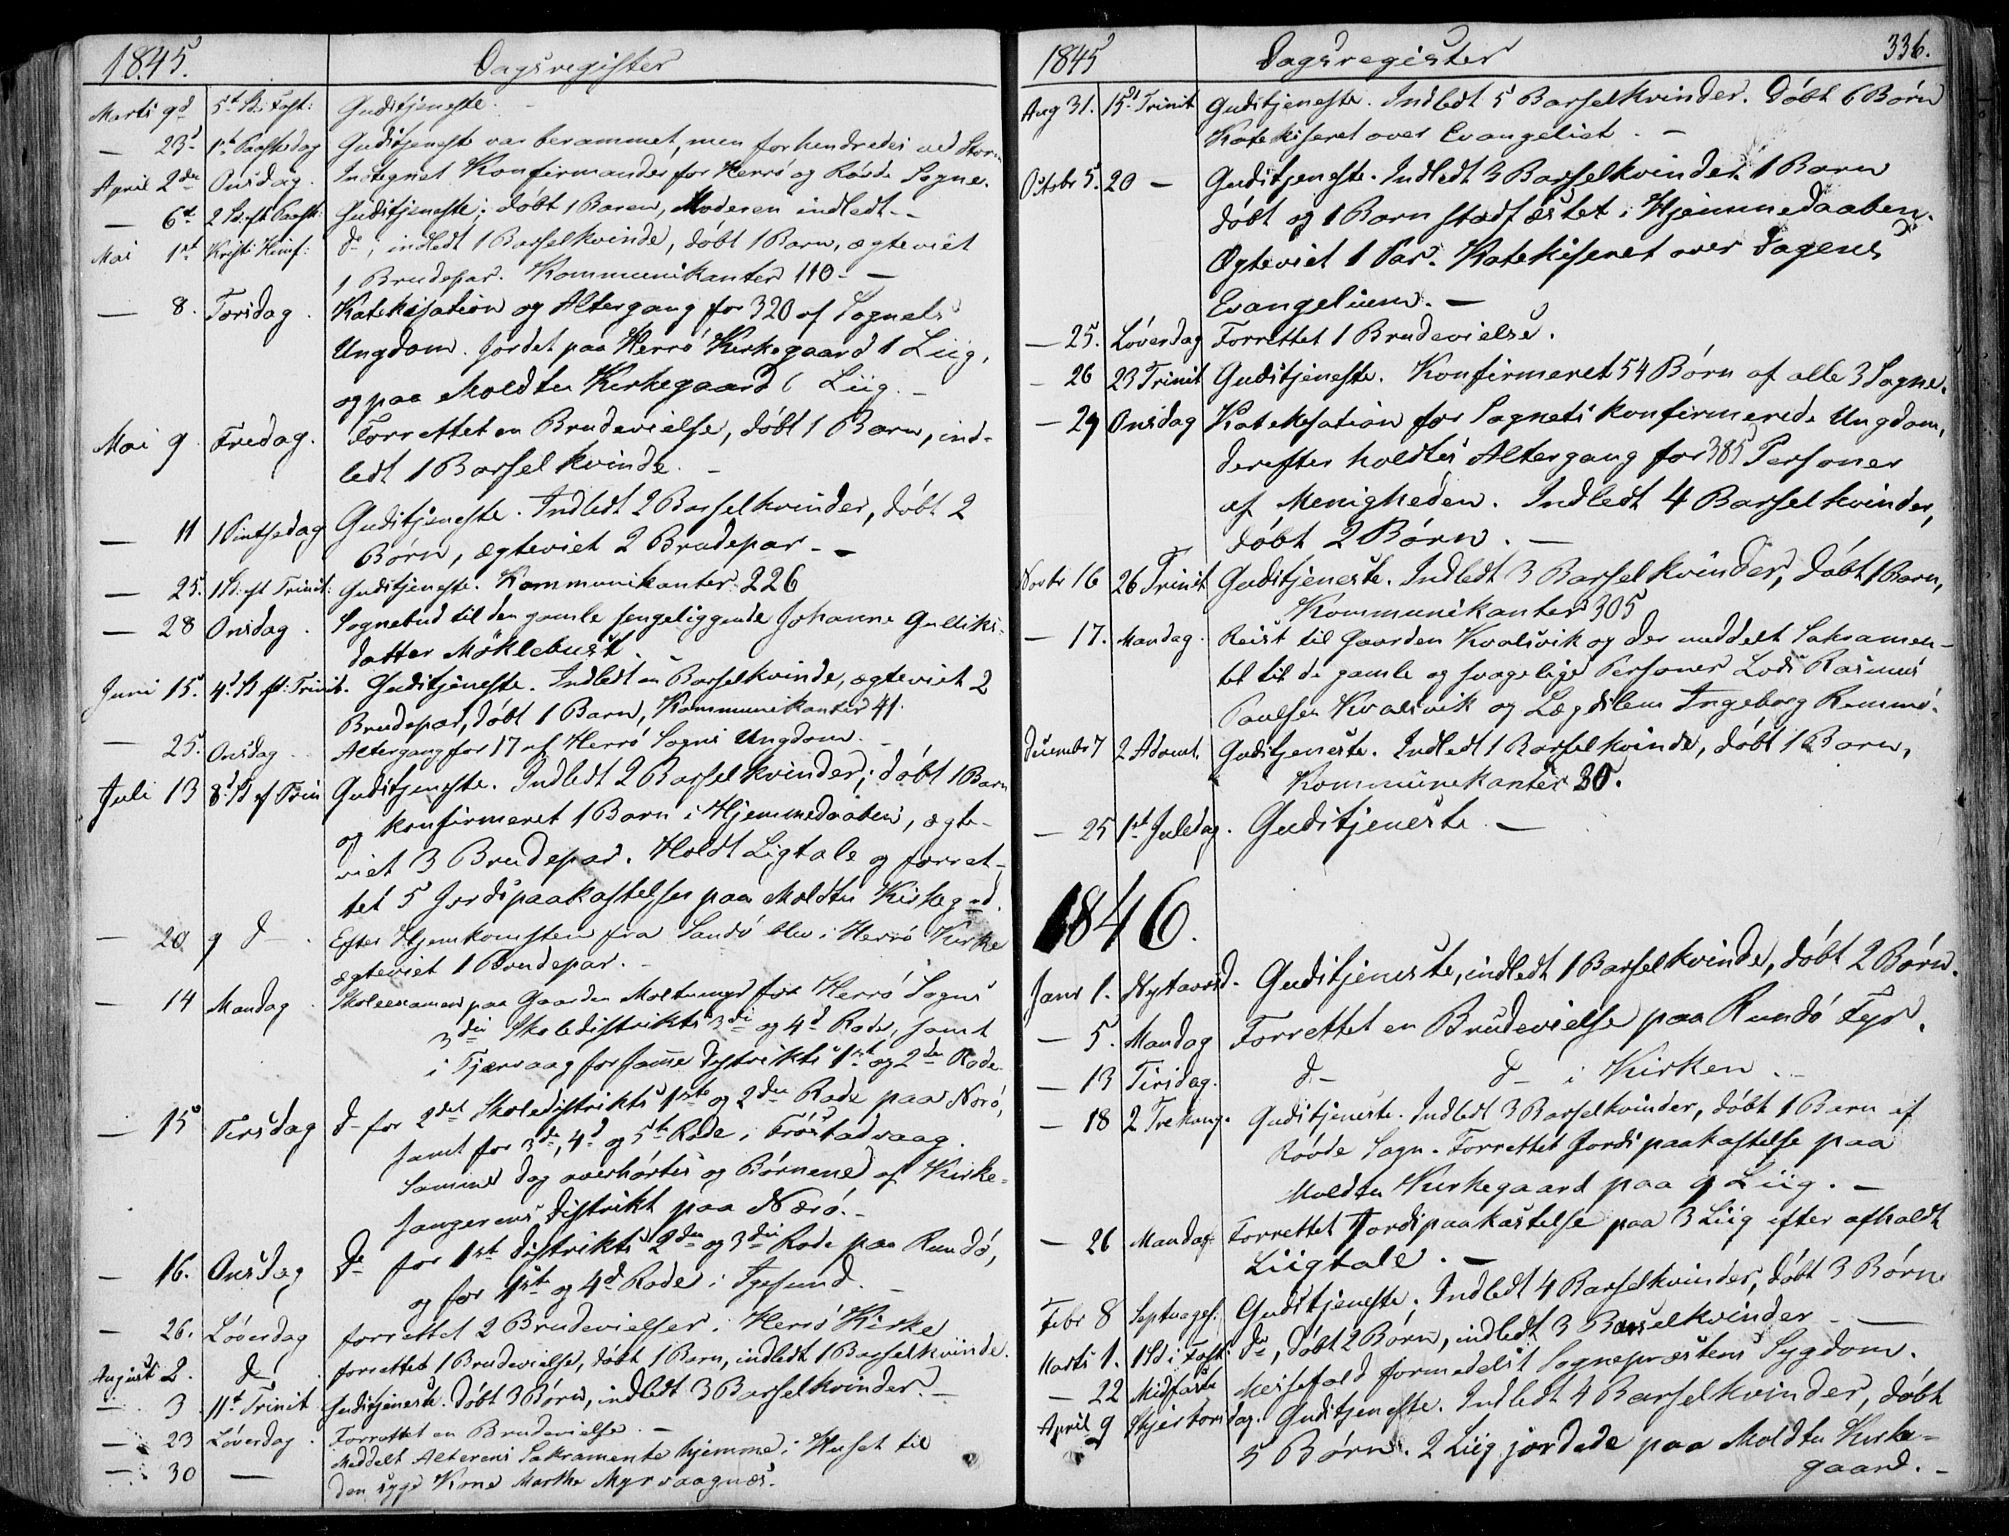 1845. Dagsregister
Marti 9d 5t S. i Fast: Gudstjeneste. -
— 23d 1ste Paaskedag Gudstjeneste var berammet, men forhindredes ved Storm
April 2den Onsdag. Indtegnet Konfirmander for Herrö og Røvde Sogne.
— 6te 2 S. eft Paaske Gudstjeneste; døbt 1 Baren, Moderen indledt. -
Mai 1st Kristi Himf: do, indledt 1 Barselkvinde, døbt 1 Barn, ægteviet
1 Brudepar. Kommunikanter 110. —
— 8. Torsdag. Katekisation og Altergang for 320 af Sognets
Ungdom. Jordet paa Herrö Kirkegaard 1 Liig,
og paa Moldtu Kirkegaard 6 Liig. -
Mai 9. Fredag. Forrettet en Brudevielse, døbt 1 Barn, ind-
ledt 1 Barselkvinde. -
— 11 1 Pintsedag Gudstjeneste. Indledt 2 Barselkvinder, døbt 2
Børn, ægteviet 2 Brudepar. -
— 25. 1 S. eft Trinit: Gudstjeneste. Kommunikanter 226
— 28 Onsdag. Sognebud til den gamle sengeliggende Johanne Gulliks-
datter Möklebust.
Juni 15. 4d S. eft: Trinit. Gudstjeneste. Indledt en Barselkvinde, ægteviet 2
Brudepar, døbt 1 Barn, Kommunikanter 41.
— 25. Onsdag. Altergang for 17 af Herrö Sogns Ungdom. -
Juli 13 8d S. ef Trin Gudstjeneste. Indledt 2 Barselkvinder; døbt 1 Barn
og konfirmeret 1 Barn i Hjemmedaaben, ægte-
viet 3 Brudepar. Holdt Ligtale og forret-
tet 5 Jordspaakastelser paa Moldtu Kirkegrd.
— 20 9 d — . Efter Hjemkomsten fra Sandö blev i Herrö Kirke
ægteviet 1 Brudepar. -
— 14 Mandag. Skoleexamen paa Gaarden Moltumyr for Herrö Sogns
3die Skoledistrikts 3die og 4d Rode, samt
i Tjærvaag for samme Distrikts 1ste og 2den Rode
— 15 Tirsdag do for 2det Skoledistrikts 1ste og 2den Rode paa Nerö,
samt for 3de, 4d og 5te Rode i Frøstadvaag.
Samme Dag overhørtes og Børnene af Kirke-
sangerens Distrikt paa Nærö. -
— 16. Onsdag do for 1ste Distrikts 2den og 3die Rode paa Rundö,
og for 1ste og 4d Rode i Igesund. -
— 26. Löverdag forrettet 2 Brudevielser i Herrö Kirke
August 2. d — . forrettet 1 Brudevielse, døbt 1 Barn, indledt 1 Barselkvinde.
— 3 11te Trinit Gudstjeneste. døbt 3 Børn, indledt 3 Barselkvinder. -
— 23 Löverdag. Forrettet en Brudevielse. -
— 30 — Meddelt Alterens Sakramente hjemme i Huset til
den syge Kone Marthe Myrvaagnæs.
1845 Dagsregister 336.
Aug 31. 15d Trinit Gudstjeneste. Indledt 5 Barselkvinder. Døbt 6 Børn
Katekiseret over Evangeliet. -
Octobr 5. 20 — Gudstjeneste. Indledt 3 Barselkvinder. 1 Barn
døbt og 1 Barn stadfæstet i Hjemmedaaben.
Ægteviet 1 Par. Katekiseret over Dagens
Evangelium. —
— 25. Löverdag Forrettet 1 Brudevielse.
— 26 23 Trinit Gudstjeneste. Konfirmeret 54 Børn af alle 3 Sogne.
— 29 Onsdag Katekisation for Sognets konfirmerede Ungdom,
derefter holdtes Altergang for 385 Personer
af Menigheden. Indledt 4 Barselkvinder,
døbt 2 Børn. —
Novbr 16 26 Trinit Gudstjeneste. Indledt 3 Barselkvinder, døbt 1 Barn,
Kommunikanter 305
— 17. Mandag. Reist til Gaarden Kvalsvik og der meddelt Sakramen-
tet til de gamle og svagelige Personer Lods Rasmus
Paulsen Kvalsvik og Lægdslem Ingeborg Remmö.
Decembr 7 2 Advent. Gudstjeneste. Indledt 1 Barselkvinde, døbt 1 Barn,
Kommunikanter 30.
— 25 1st Juledag. Gudstjeneste. —
1846.
Janr 1. Nytaarsd. Gudstjeneste, indledt 1 Barselkvinde, døbt 2 Børn.
— 5. Mandag Forrettet en Brudevielse paa Rundö Fyr.
— 13 Tirsdag. d — d — i Kirken. -
— 18 2 Trekong. Gudstjeneste. Indledt 3 Barselkvinder, døbt 1 Barn af
Røvde Sogn. Forrettet Jordspaakastelse paa
Moldtu Kirkegaard paa 9 Liig. —
— 26 Mandag Forrettet Jordspaakastelse paa 3 Liig efter afholdt
Liigtale. —
Febr 8 Septuages. Gudstjeneste. Indledt 4 Barselkvinder, døbt 3 Børn
Marts 1. 1 S. i Fast do, døbt 2 Børn, indledt 3 Barselkvinder. —
— 22 Midfaste Messefald formedelst Sognepræstens Sygdom.
April 9 Skjertorsdag. Gudstjeneste. Indledt 4 Barselkvinder, døbt
5 Børn. 2 Liig jordede paa Moldtu Kirke-
gaard. -